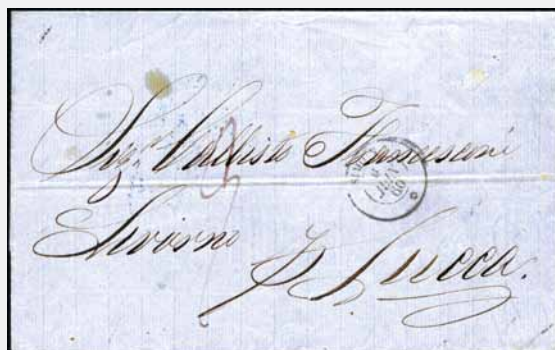 Sig.r Callisto Francesconi
Livorno
p Lucca.
GIU
60